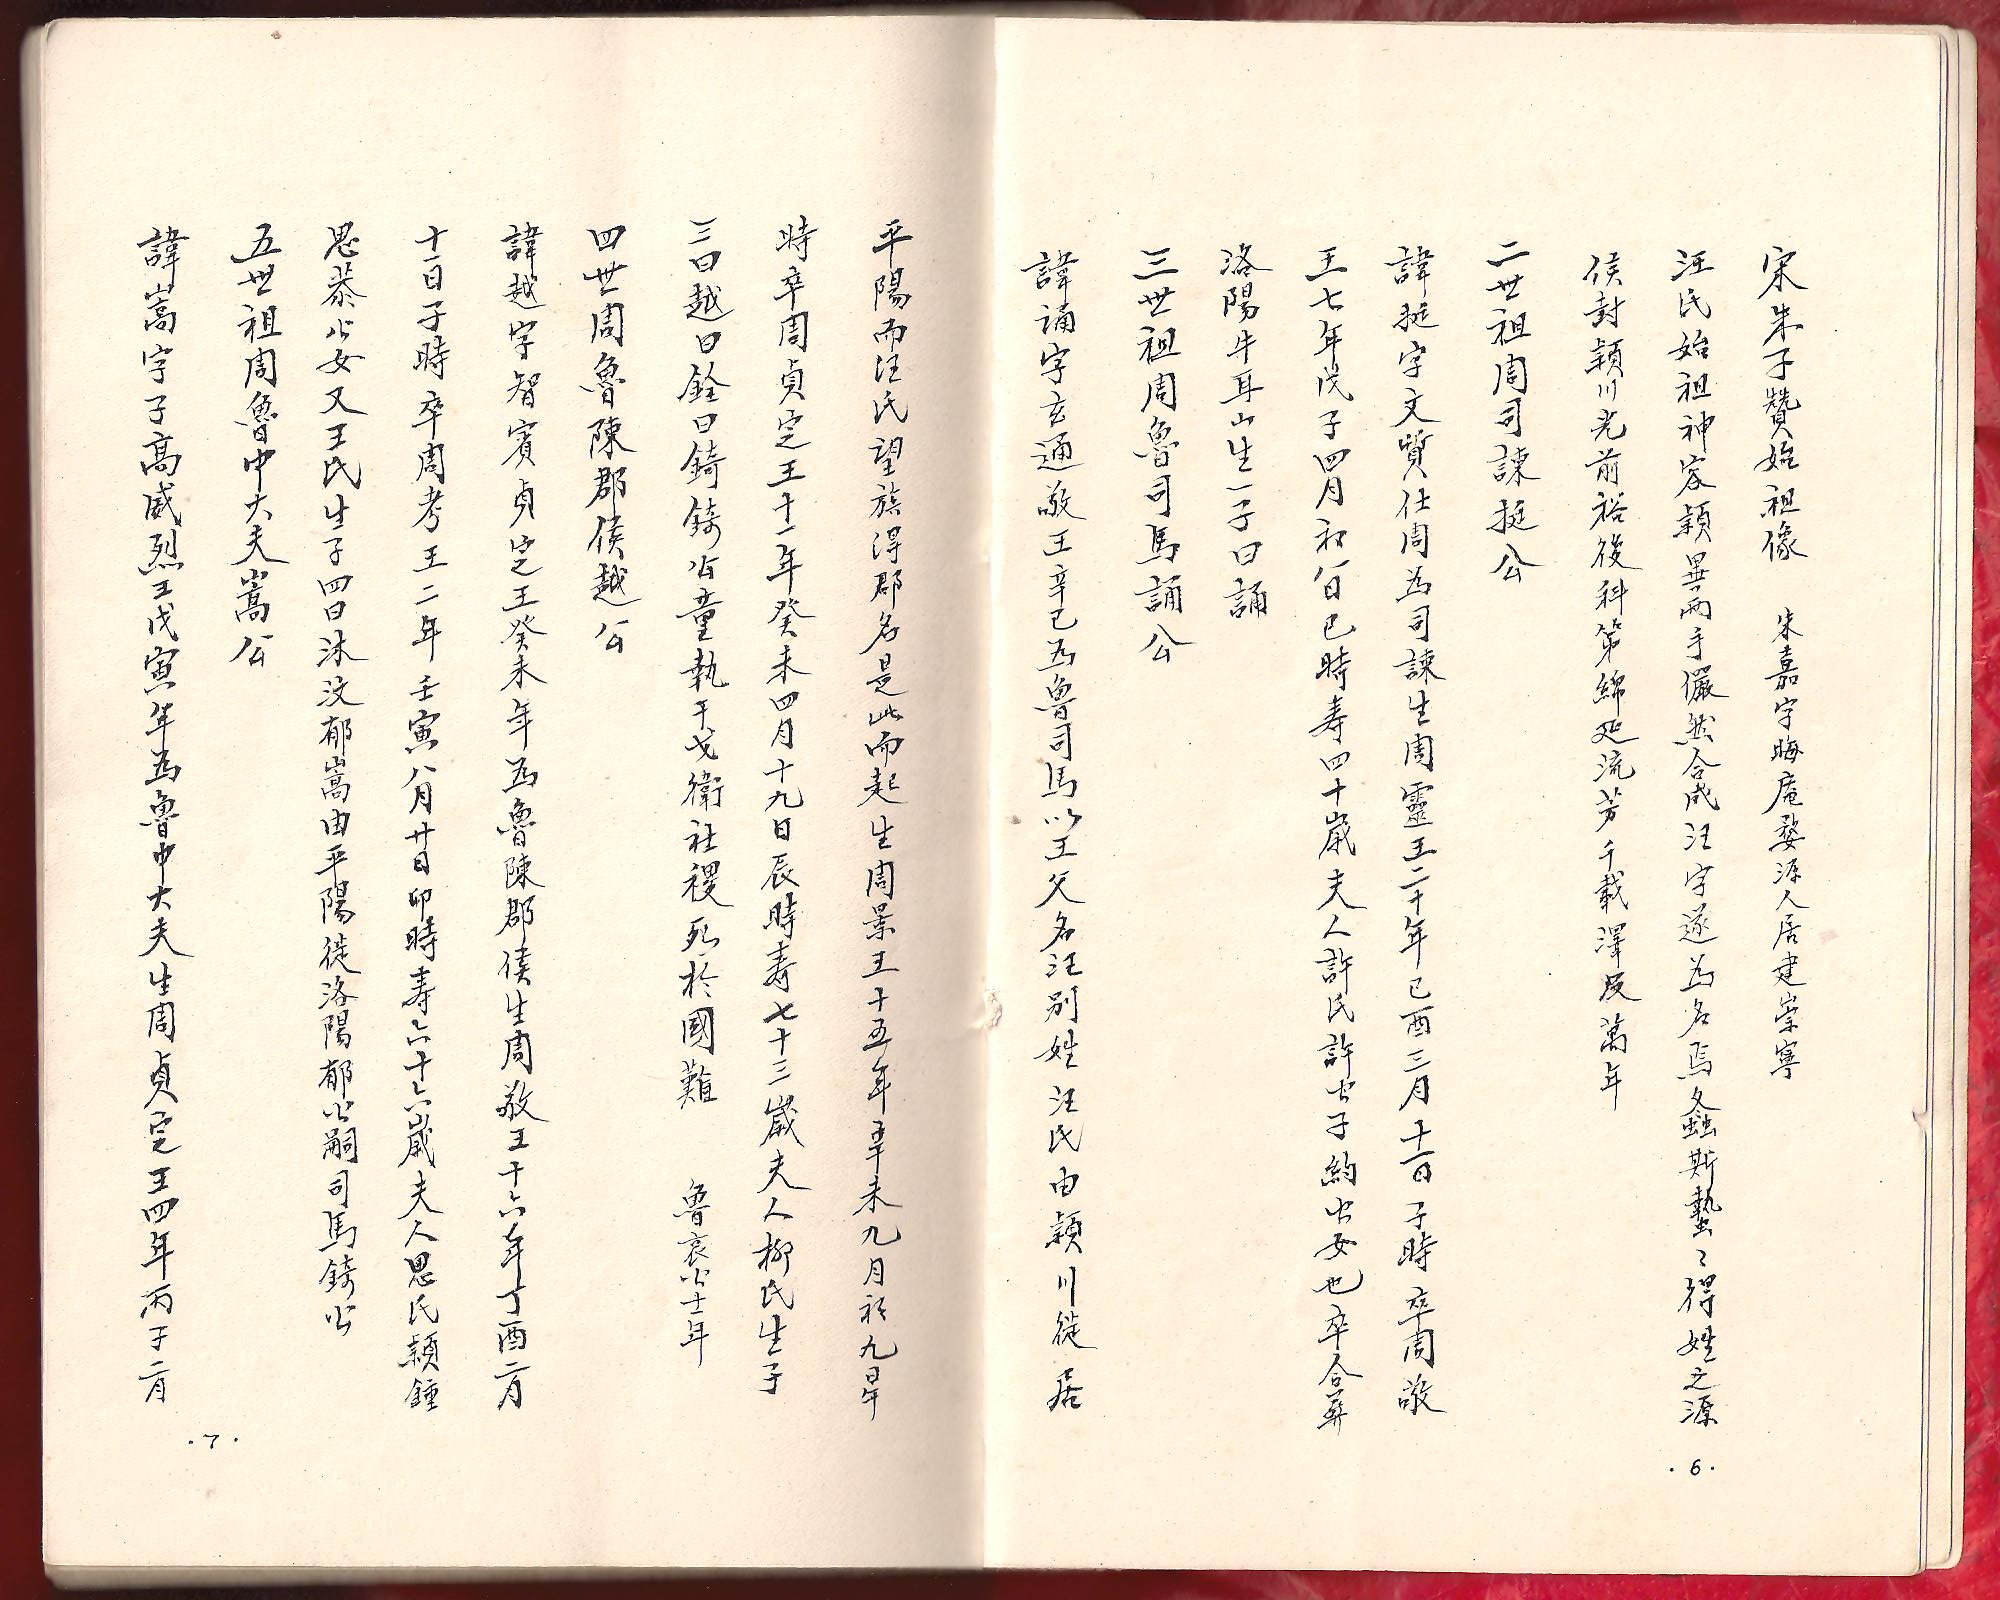 宋朱子贊始祖像　朱嘉字晦庵婺源人居建崇寧
汪氏始祖神容穎異兩手儼然合成汪字遂為名焉螽斯蟄〻得姓之源
侯封穎川光前裕後科第綿延流芳千載澤及萬年
二世祖周司諫挺公
諱挺字文質仕周為司諫生周靈王二十年己酉三月十一日子時卒周敬
王七年戊子四月初八日巳時寿四十歲夫人許氏許公子約公女也卒合葬
洛陽牛耳山生一子曰誦
三世祖周魯司馬誦公
諱誦字玄通敬王辛巳為魯司馬以王父名汪別姓汪氏由穎川徙居
·6·
平陽而汪氏望族得郡名是此而起生周景王十五年辛未九月初九日午
時卒周貞定王十一年癸未四月十九日辰時寿七十三歲夫人柳氏生子
三曰越曰銓曰錡錡公童執干戈衛社稷死於國難　魯哀公十一年
四世周魯陳郡侯越公
諱越字智賓貞定王癸未年為魯陳郡侯生周敬王十六年丁酉二月
十一日子時卒周考王二年壬寅八月廿日卯時寿六十六歲夫人思氏穎鍾
思恭公女又王氏生子四曰沐汶郁嵩由平陽徙洛陽郁公嗣司馬錡公
五世祖周魯中大夫嵩公
諱嵩字子高威烈王戊寅年為魯中大夫生周貞定王四年丙子二月
·7·